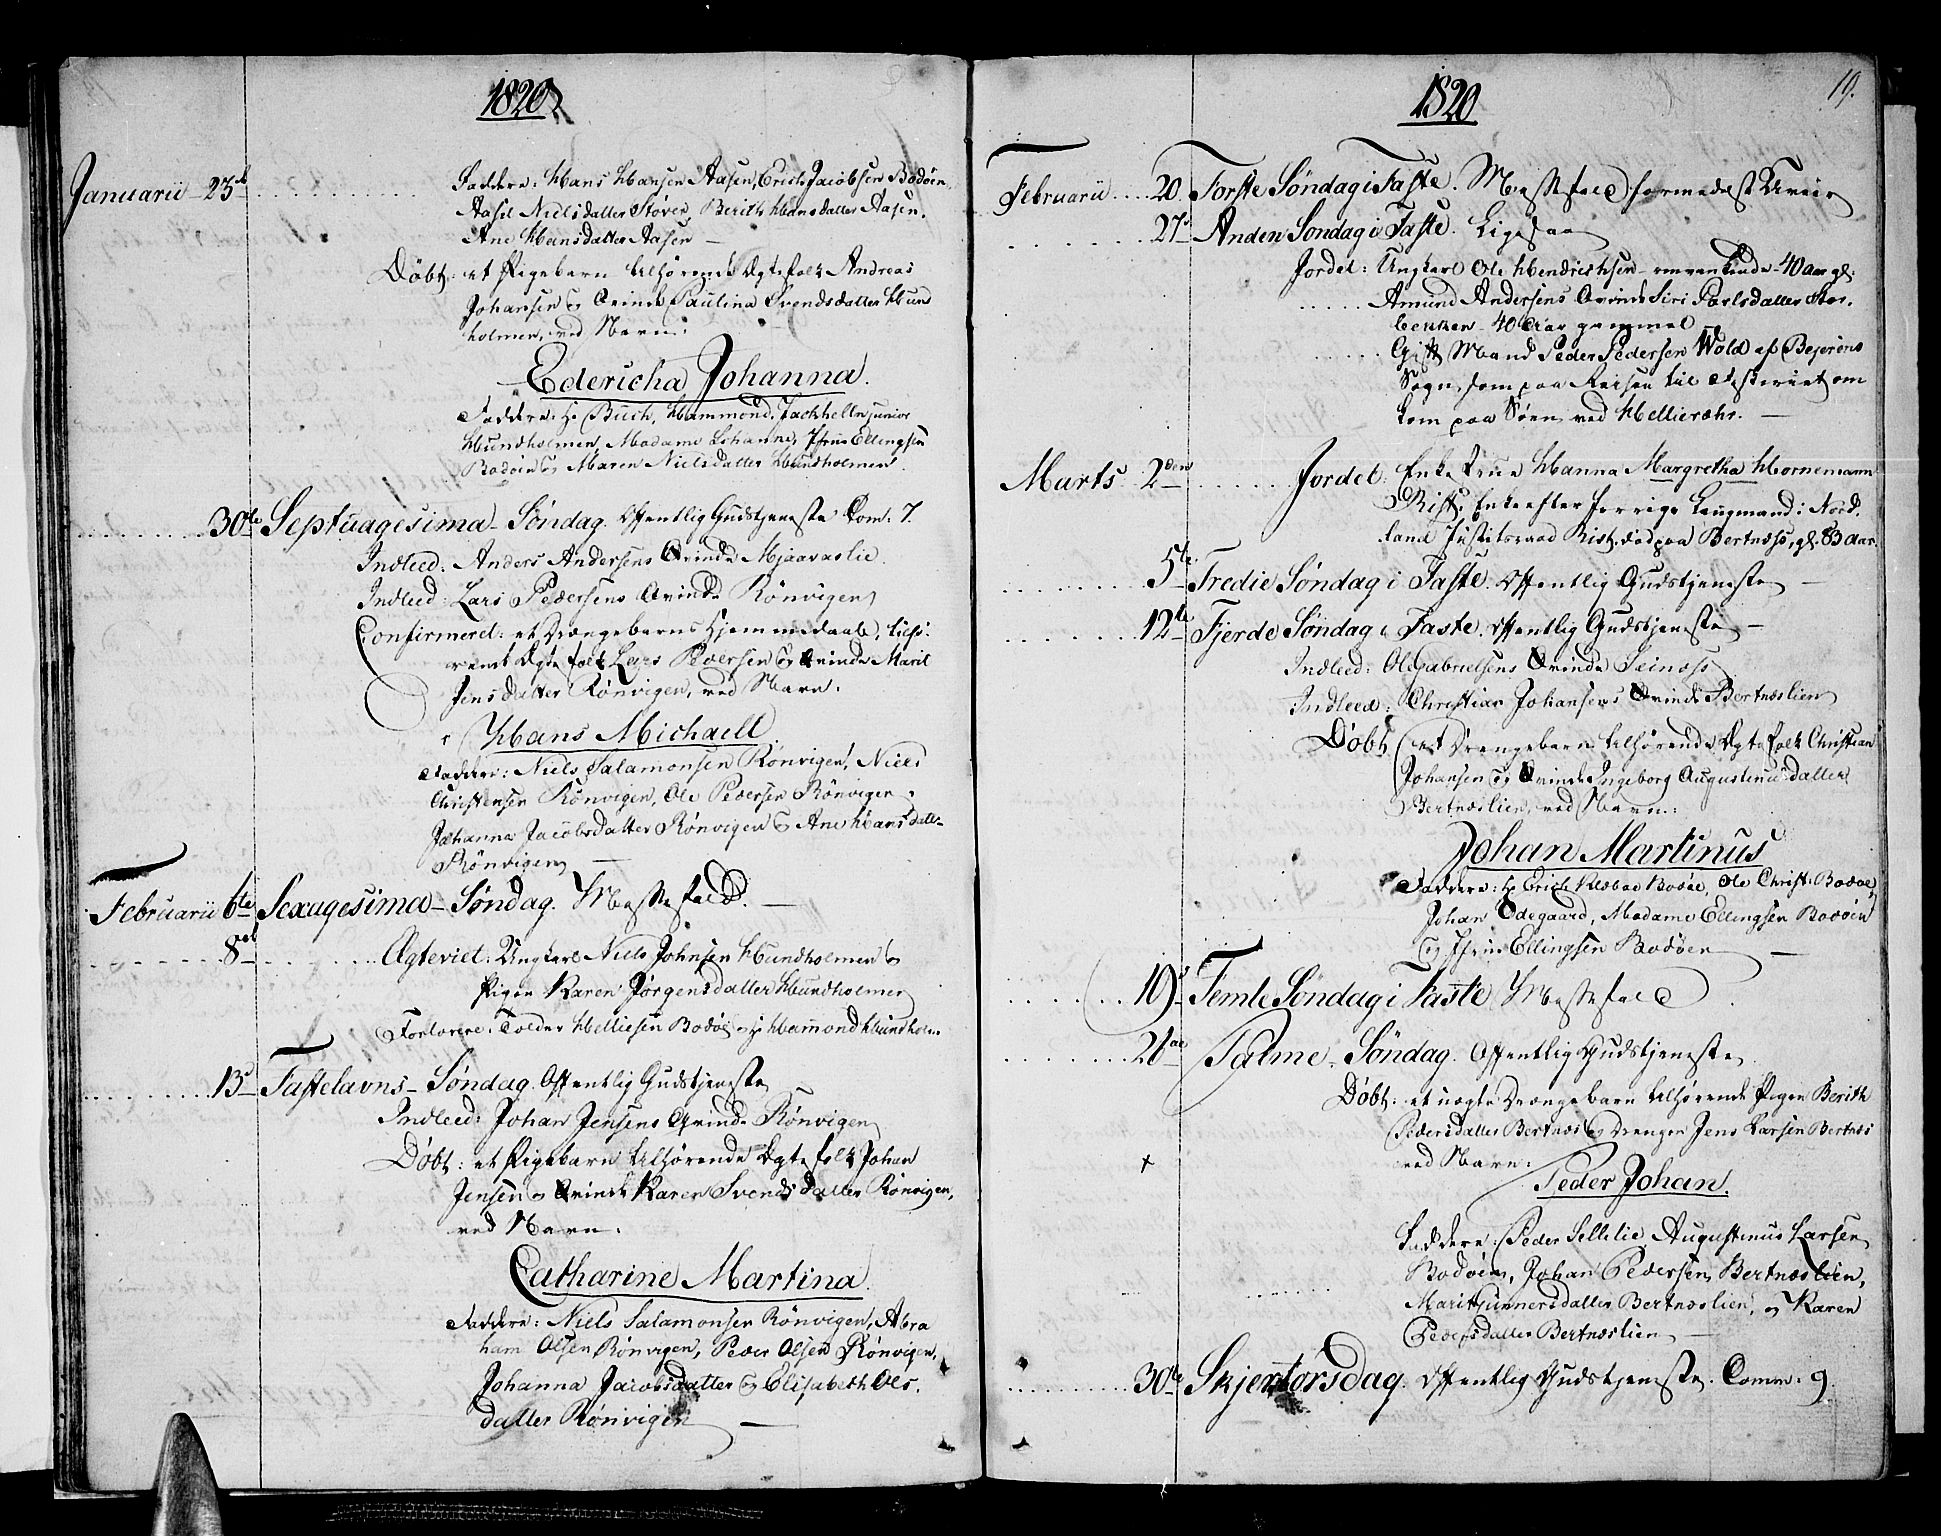 1820
Januarii 23de Faddere: Hans Hansen Aasen, Erich Jacobsen Bodøen,
Aasel Nielsdatter Støver, Berith Hansdatter Aasen,
Ane Hansdatter Aasen
Döbt: et Pigebarn tilhørende Ægtefolk Andreas
Johansen og Qvinde Paulina Svendsdatter Hund
holmen, ved Navn:
Edericha Johanna.
Faddere: Hr Buch, Hammond, Jackhelln junior
Hundholmen, Madame Johanna, Jfrue Ellingsen
Bodøen og Maren Nielsdatter Hundholmen.
30te Septuagesima Söndag. Offentlig Gudstjeneste Com: 7.
Indleed: Anders Andersens Qvinde Mjaavaslie.
Indleed: Lars Pedersens Qvinde Rönvigen
Confirmeret: et Drængebarns Hjemmedaab, tilhö-
rende Ægtefolk Lars Pedersen og Qvinde Marit
Jensdatter Rönvigen, ved Navn:
Hans Michaell.
Faddere: Niels Salamonsen Rönvigen, Niels
Christensen Rönvigen, Ole Pedersen Rönvigen,
Johanna Jacobsdatter Rönvigen og Ane Hansdatter
Rönvigen
Februarii 6te Sexagesima Söndag. Messefald.
8de Ægteviet: Ungkarl Niels Johnsen Hundholmen og
Pigen Karen Jörgensdatter Hundholmen
Forlovere: Tolder Helliesen Bodöe og Hr Hammond Hundholm.
13de Fastelavns Söndag. Offentlig Gudstjeneste
Indleed: Johan Jensens Qvinde Rönvigen
Döbt: et Pigebarn tilhørende Ægtefolk Johan
Jensen og Qvinde Karen Svendsdatter Rönvigen,
ved Navn:
Catharine Martina.
Faddere: Niels Salamonsen Rönvigen, Abra
ham Olsen Rönvigen, Peder Olsen Rönvigen,
Johanna Jacobsdatter og Elisabeth Ols-
datter Rönvigen
1820
19.
Februarii 20 Forste Søndag i Faste. Messefald formedelst Uveir
27de Anden Søndag i Faste. Ligesaa
Jordet: Ungkarl Ole Hendrichsen 40 aar gl:
Amund Andersens Qvinde Siri Povlsdatter
40 Aar gammel
Gift Mand Peder Pedersen Wold af Bejerens
Sogn, som paa Reisen til om
kom paa Søen ved
Marts 2den Jordet: Enke Frue Hanna Margretha Hornemann
Rist, Enke efter forrige Laugmand i Nord
land Justitsraad Rist, død paa Bertnæss, gl: 83 Aar.
5te Tredie Söndag i Faste. Offentlig Gudstjeneste
12te Fjerde Söndag i Faste. Offentlig Gudstjeneste
Indleed: Ole Gabrielsens Qvinde Seinæss
Indleed: Christian Johansens Qvinde Bertnæslien
Döbt et Drengebarn tilhørende Ægtefolk Christian
Johansen og Qvinde Ingeborg Augustinusdatter
Bertnæslien, ved Navn:
Johan Martinus
Faddere: Hr Erich Bodöe, Ole Christ: Bodöe,
Johan Ödegaard, Madame Ellingsen Bodöen
og Jfrue Ellingsen Bodöen
19de Femte Søndag i Faste Messefald
26de Palme Söndag. Offentlig Gudstjeneste
Döbt: et uægte Drængebarn tilhørende Pigen Berith
Pedersdatter Bertnæs og Drengen Jens Larsen Bertnæs
ved Navn:
Peder Johan.
Faddere: Peder Augustinus Larsen
Bodöen, Johan Pedersen Bertnæslien,
Marit Gunnersdatter Bertnæslien, og Karen
Pedersdatter Bertnæslien
30te Skjertorsdag. Offentlig Gudstjeneste. Comm: 9.